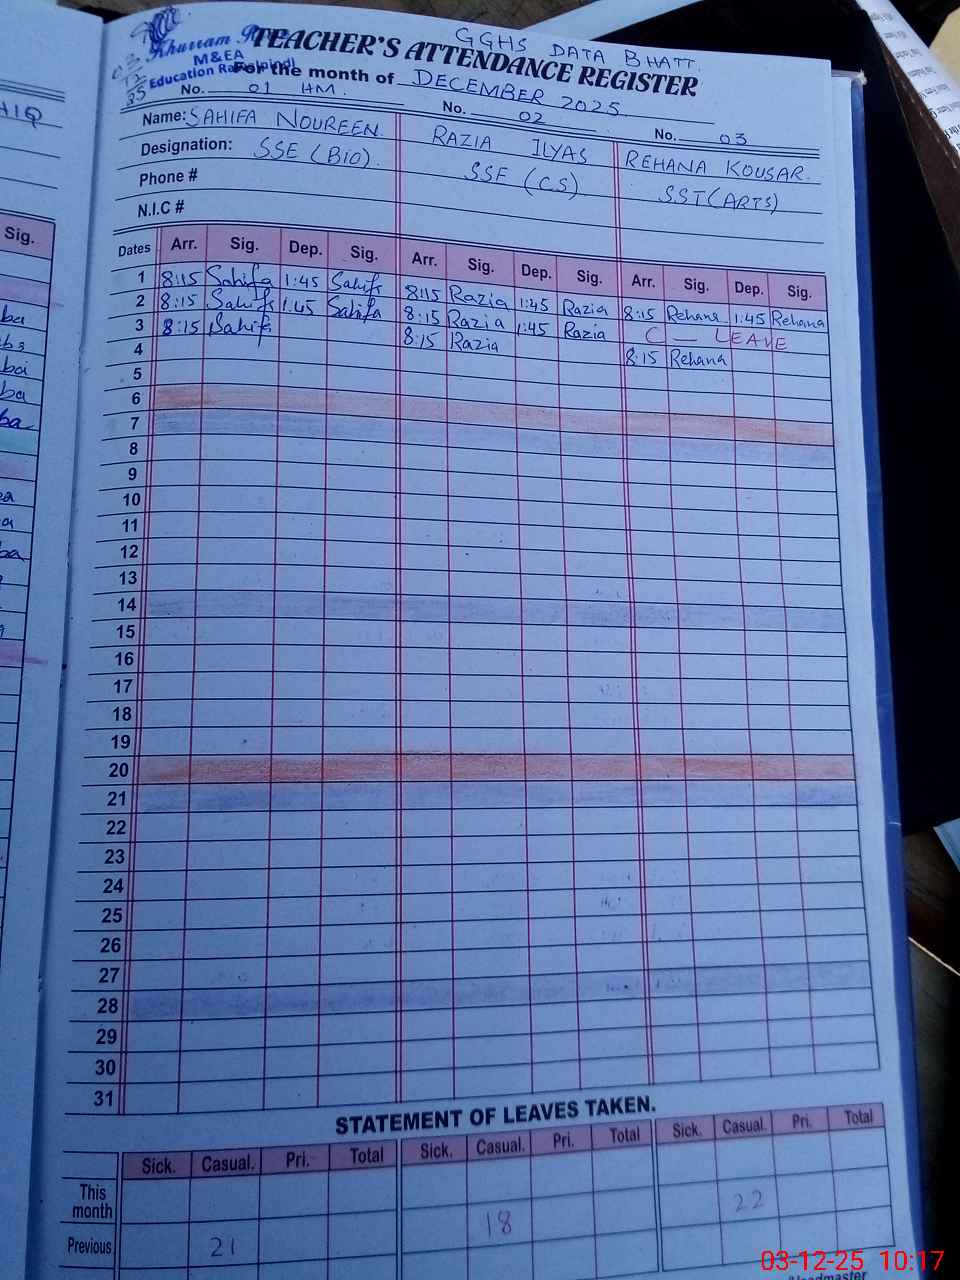 GGHS DATA BHATT.
TEACHER'S ATTENDANCE REGISTER
Khurram
M&EA
Education Rawalpindi
For the month of DECEMBER 2025
No. 01 HM. No. 02 No. 03
Name: SAHIFA NOUREEN RAZIA ILYAS REHANA KOUSAR.
Designation: SSE (BIO). SSE (CS) SST (ARTS)
Phone #
N.I.C #
Dates Arr. Sig. Dep. Sig. Arr. Sig. Dep. Sig. Arr. Sig. Dep. Sig.
1 8:15 Sahifa 1:45 Sahifa 8:15 Razia 1:45 Razia 8:15 Rehana 1:45 Rehana
2 8:15 Sahifa 1:45 Sahifa 8:15 Razia 1:45 Razia C — LEAVE
3 8:15 Sahifa 8:15 Razia 8:15 Rehana
4
5
6
7
8
9
10
11
12
13
14
15
16
17
18
19
20
21
22
23
24
25
26
27
28
29
30
31
STATEMENT OF LEAVES TAKEN.
Sick. Casual. Pri. Total Sick. Casual. Pri. Total Sick. Casual. Pri. Total
This month
Previous 21 18 22
Sig.
03-12-25 10:17